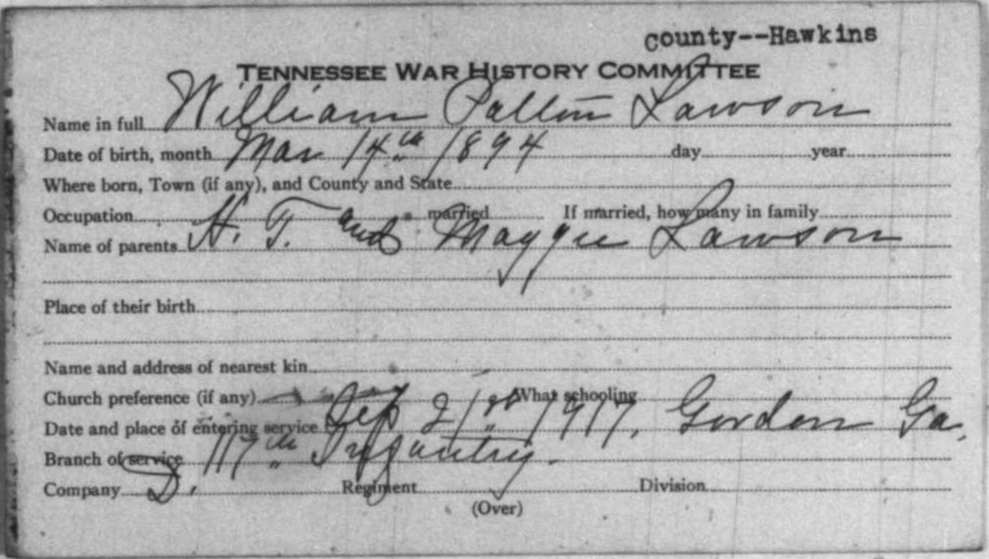 county--Hawkins
TENNESSEE WAR HISTORY COMMITTEE
Name in full William Patton Lawson
Date of birth, month Mar 14th 1894 day year
Where born, Town (if any), and County and State
Occupation married If married, how many in family
Name of parents H. T. and Maggie Lawson
Place of their birth
Name and address of nearest kin
Church preference (if any) What schooling
Date and place of entering service Sep 21st 1917, Gordon Ga.
Branch of service 117th Infantry.
Company D. Regiment Division
(Over)